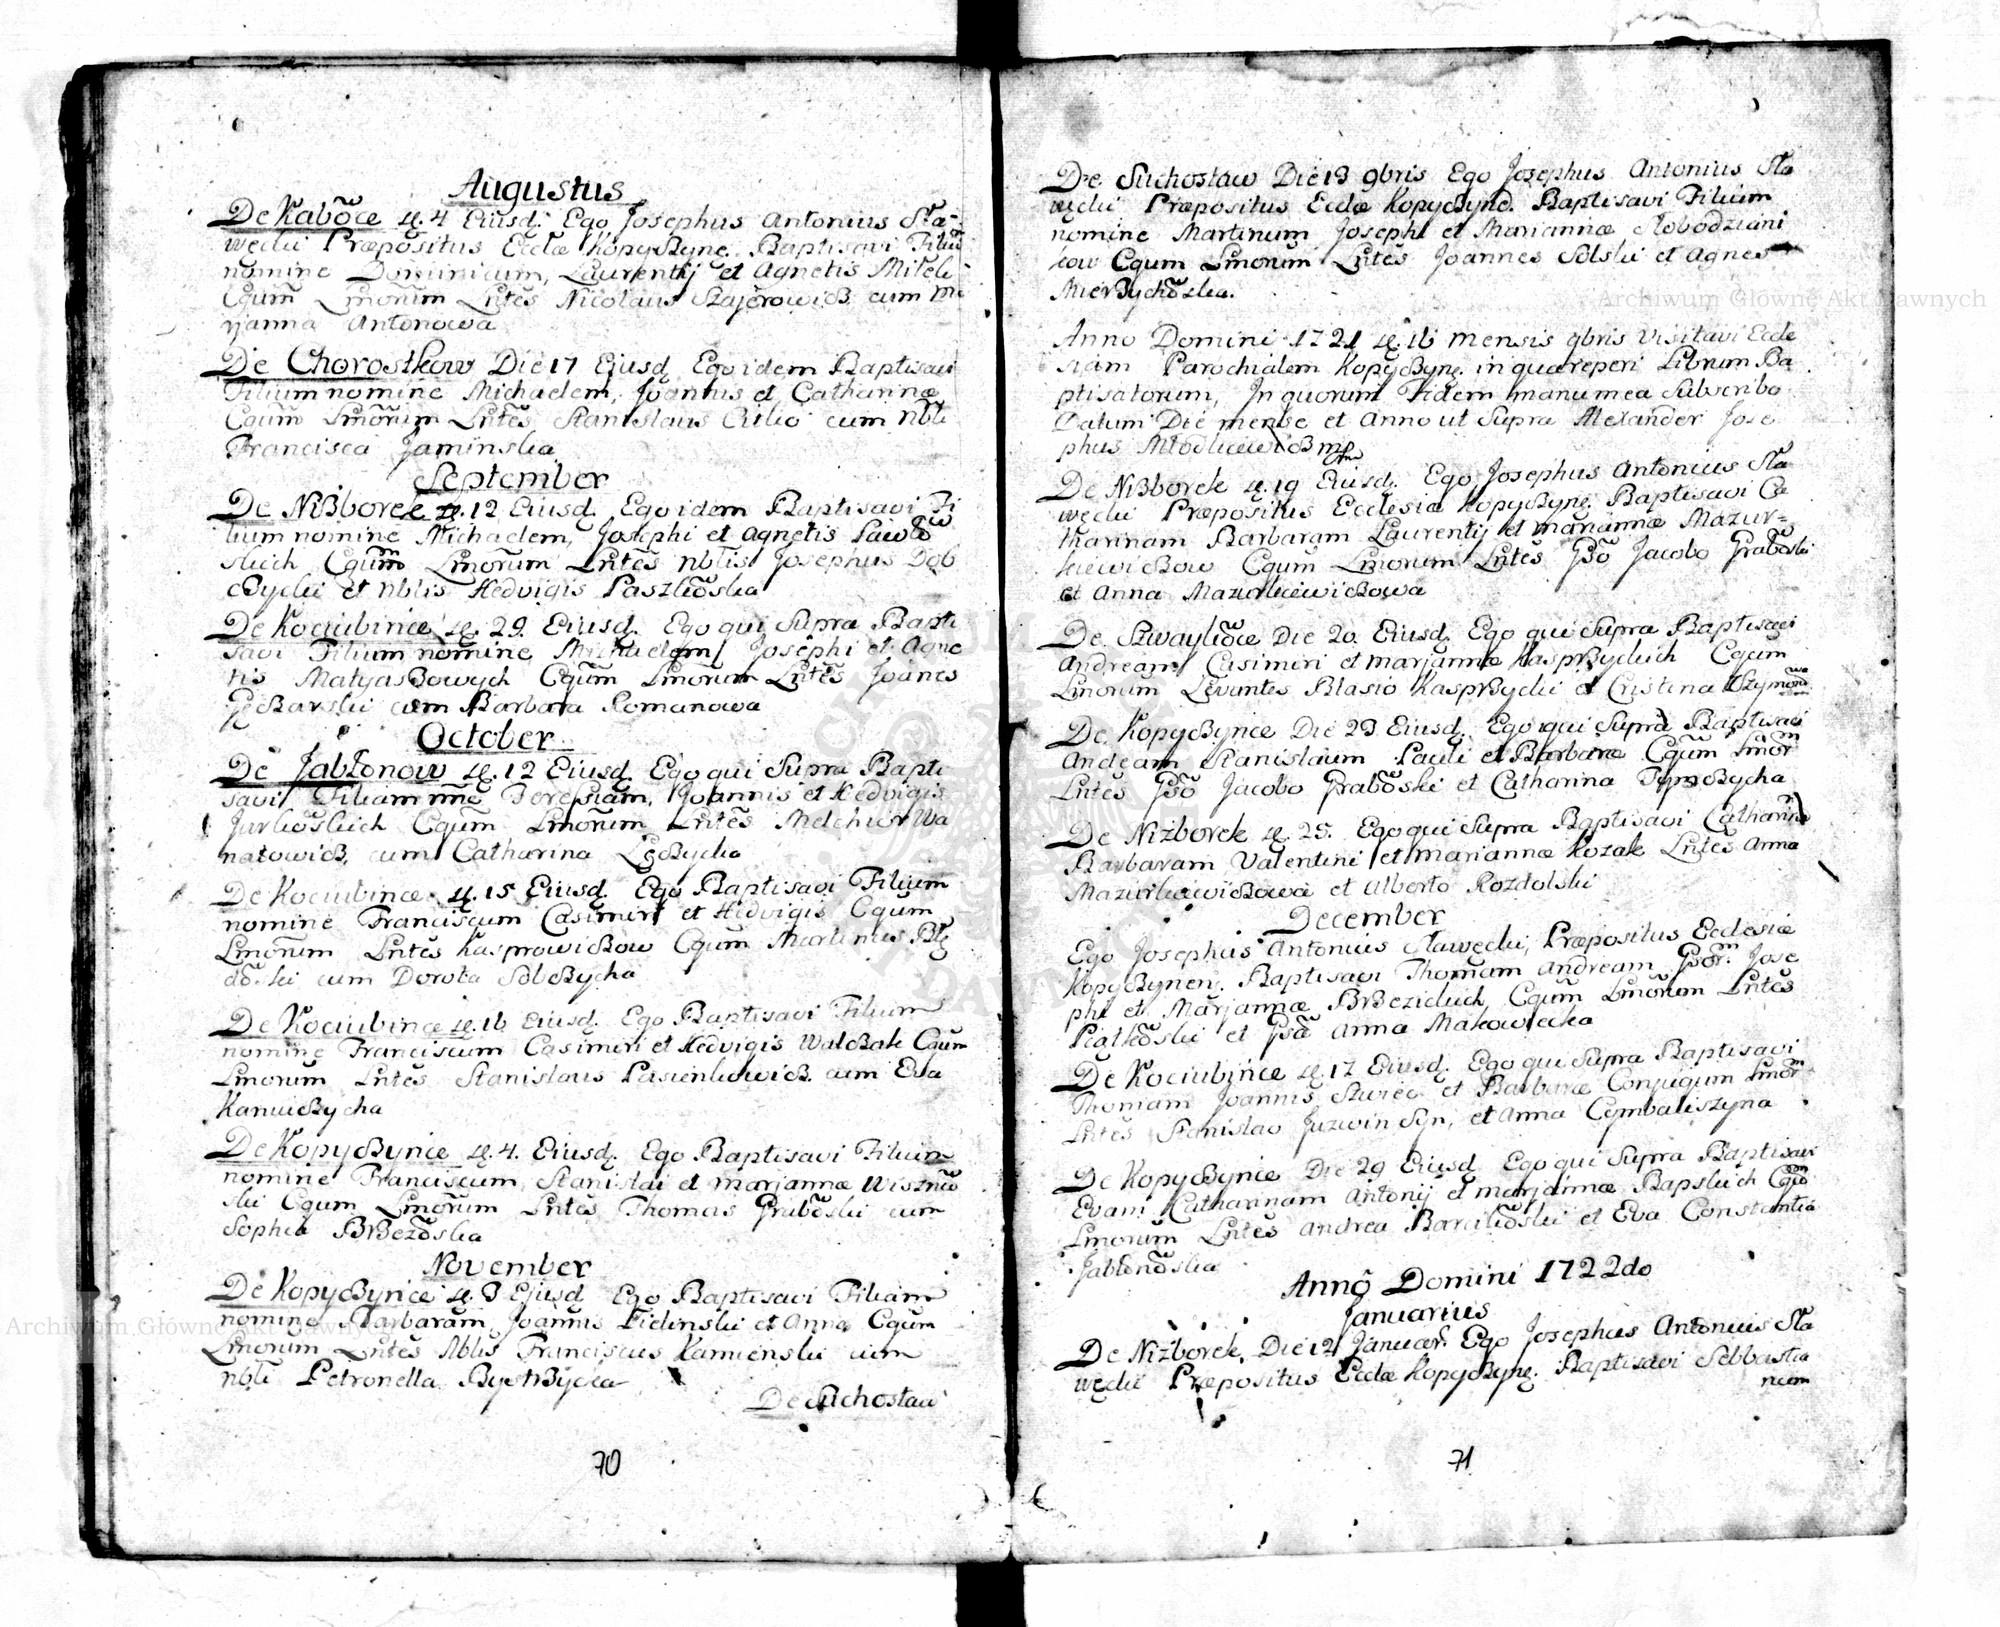 Augustus
De Kabõce 4 Eiusd: Ego Josephus Antonius Sła-
węcki Præpositus Eccłæ Kopyczyne. Baptisavi Filiũ
nomine Dominicum, Laurentij et Agnetis Mitek
Cgum Lmorum Lntes Nicolaus Szajerowicz cum Ma
rjanna Antonowa
De Chorostkow Die 17 Eiusd Ego idem Baptisavi
Filium nomine Michaelem, Joannis et Catharinæ
Cgum Lmorum Lntes Stanislaus cum Nbli
Francisca Jaminska
September
De Niżborek 12 Eiusd. Ego idem Baptisavi Fi
lium nomine Michaelem, Josephi et Agnetis
skich Cgum Lmorum Lntes Nblis Josephus Dob
czycki et Nblis Hedvigis Paszkõska
De Kociubince 29. Eiusd. Ego qui Supra Bapti
savi Filium nomine Michaelem Josephi et Agne
tis Matyaszowych Cgum Lmorum Lntes Joanes
cum Barbara Romanowa
October
De Jabłonow 12 Eiusd. Ego qui Supra Bapti
savi Filiam nne Teresiam, Joannis et Hedvigis
Jurkõskich Cgum Lmorum Lntes Melchior Wa
natowicz cum Catharina
De Kociubince 15 Eiusd. Ego Baptisavi Filium
nomine Franciscum Casimiri et Hedvigis Cgum
Lmorum Lntes Kasprowiczow Cgum Martinus Błę
dõski cum Dorota Sobczycha
De Kociubince 16 Eiusd. Ego Baptisavi Filium
nomine Franciscum Casimiri et Hedvigis Walczak Cgum
Lmorum Lntes Stanislaus Pasienkowicz cum Eva
De Kopyczynce 4. Eiusd. Ego Baptisavi Filium
nomine Franciscum, Stanislai et Marjannæ Wiszniõ
ski Cgum Lmorum Lntes Thomas Grabõski cum
Sophia Brzezõska
November
De Kopyczynce 3 Ejusd Ego Baptisavi Filiam
nomine Barbaram, Joannis et Anna Cgum
Lmorum Lntes Nblis Franciscus Kamienski cum
nbli Petronella Bystrzycka
De Suchostaw
70
De Suchostaw Die 13 9bris Ego Josephus Antonius Sła
węcki Præpositus Eccłæ Kopyczynę. Baptisavi Filium
nomine Martinum Josephi et Mariannæ Słobodziani
kow Cgum Lmorum Lntes Joannes Solski et Agnes
Mierzychõska.
Anno Domini 1721 16 mensis 9bris Visitavi Eccle
siam Parochialem Kopyczynę. in qua reperi Librum Ba
ptisatorum, In quorum Fidem manu mea Subscribo
Datum Die mense et Anno ut Supra Alexander Jose
phus Młodkiewicz mp
De Niżborek 19 Eiusd. Ego Josephus Antonius Sła
węcki Præpositus Ecclesiæ Kopyczynę. Baptisavi Ca
tharinam Barbaram Laurentij et Mariannæ Mazur=
kiewiczow Cgum Lmorum Lntes Gsõ Jacobo Grabõski
et Anna Mazurkiewiczowa
De Szwaykõce Die 20. Eiusd. Ego qui Supra Baptisavi
Andream Casimiri et Marjannæ Kasprzyckich Cgum
Lmorum Levantes Blasio Kasprzycki et Cristina
De Kopyczynce Die 23 Eiusd. Ego qui Supra Baptisavi
Andream Stanislaum Pauli et Barbaræ Cgum Lmor
Lntes Gsõ Jacobo Grabõski et Catharina
De Niżborek 25. Ego qui Supra Baptisavi Catharinam
Barbaram Valentini et Mariannæ Kozak Lntes Anna
Mazurkiewiczowa et Alberto Rozdolski
December
Ego Josephus Antonius Sławęcki, Præpositus Ecclesiæ
Kopyczynen. Baptisavi Thomam Andream Gsor. Jose
phi et Marjannæ Brzezickich Cgum Lmorum Lntes
Piatkõski et Gsa Anna Makowiecka
De Kociubince 17 Eiusd. Ego qui Supra Baptisavi
Thomam Joannis Szwiec et Barbaræ Conjugum Lmor
Lntes Stanislao Juzwin Syn, et Anna Cymbaliszyna
De Kopyczynce Die 29 Eiusd Ego qui Supra Baptisavi
Evam Catharinam Antonij et Marjannæ Bapskich
Lmorum Lntes Andrea et Eva Constantia
Jabłonõska
Anno Domini 1722do
Januarius
De Niżborek, Die 12 Januar. Ego Josephus Antonius Sła
węcki Præpositus Eccłæ Kopyczynę. Baptisavi Sebbastia
num
71
Archiwum Główne Akt Dawnych
Archiwum Główne Akt Dawnych